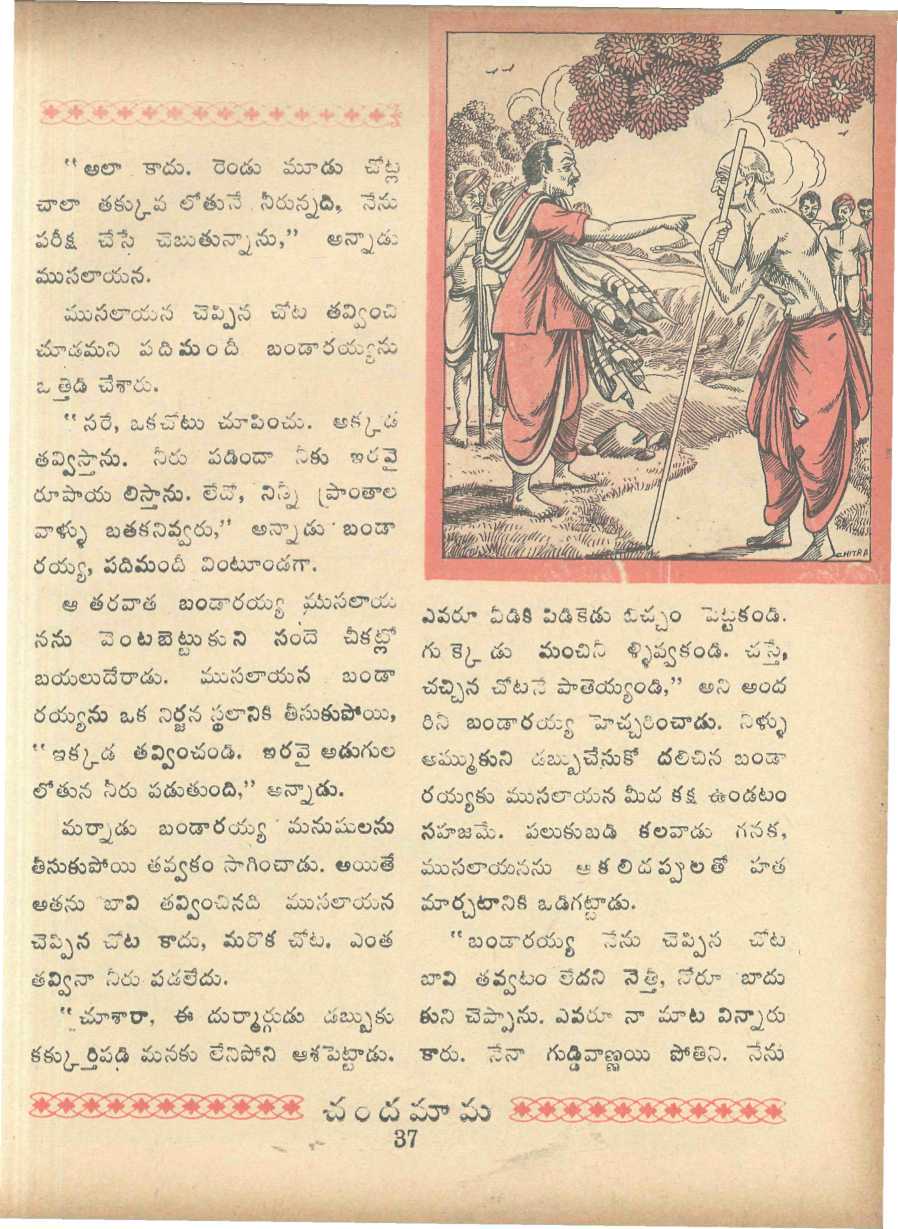 “అలా కాదు. రెండు మూడు చోట్ల
చాలా తక్కువ లోతునే నీరున్నది, నేను
పరీక్ష చేసే చెబుతున్నాను,” అన్నాడు
ముసలాయన.
ముసలాయన చెప్పిన చోట తవ్వించి
చూడమని పదిమందీ బండారయ్యను
ఒత్తిడి చేశారు.
“సరే, ఒకచోటు చూపించు. అక్కడ
తవ్విస్తాను. నీరు పడిందా నీకు ఇరవై
రూపాయ లిస్తాను. లేదో, నిన్నీ ప్రాంతాల
వాళ్ళు బతకనివ్వరు,” అన్నాడు బండా
రయ్య, పదిమందీ వింటూండగా.
ఆ తరవాత బండారయ్య ముసలాయ
నను వెంటబెట్టుకుని సందె చీకట్లో
బయలుదేరాడు. ముసలాయన బండా
రయ్యను ఒక నిర్జన స్థలానికి తీసుకుపోయి,
“ఇక్కడ తవ్వించండి. ఇరవై అడుగుల
లోతున నీరు పడుతుంది,” అన్నాడు.
మర్నాడు బండారయ్య మనుషులను
తీసుకుపోయి తవ్వకం సాగించాడు. అయితే
అతను బావి తవ్వించినది ముసలాయన
చెప్పిన చోట కాదు, మరొక చోట. ఎంత
తవ్వినా నీరు పడలేదు.
“చూశారా, ఈ దుర్మార్గుడు డబ్బుకు
కక్కుర్తిపడి మనకు లేనిపోని ఆశపెట్టాడు.
CHITRA
ఎవరూ వీడికి పిడికెడు బిచ్చం పెట్టకండి.
గుక్కెడు మంచినీ ళ్ళివ్వకండి. చస్తే,
చచ్చిన చోటనే పాతెయ్యండి,” అని అంద
రినీ బండారయ్య హెచ్చరించాడు. నీళ్ళు
అమ్ముకుని డబ్బుచేసుకో దలిచిన బండా
రయ్యకు ముసలాయన మీద కక్ష ఉండటం
సహజమే. పలుకుబడి కలవాడు గనక,
ముసలాయనను ఆకలిదప్పులతో హత
మార్చటానికి ఒడిగట్టాడు.
“బండారయ్య నేను చెప్పిన చోట
బావి తవ్వటం లేదని నెత్తీ, నోరూ బాదు
కుని చెప్పాను. ఎవరూ నా మాట విన్నారు
కారు. నేనా గుడ్డివాణ్ణయి పోతిని. నేను
చందమామ
37